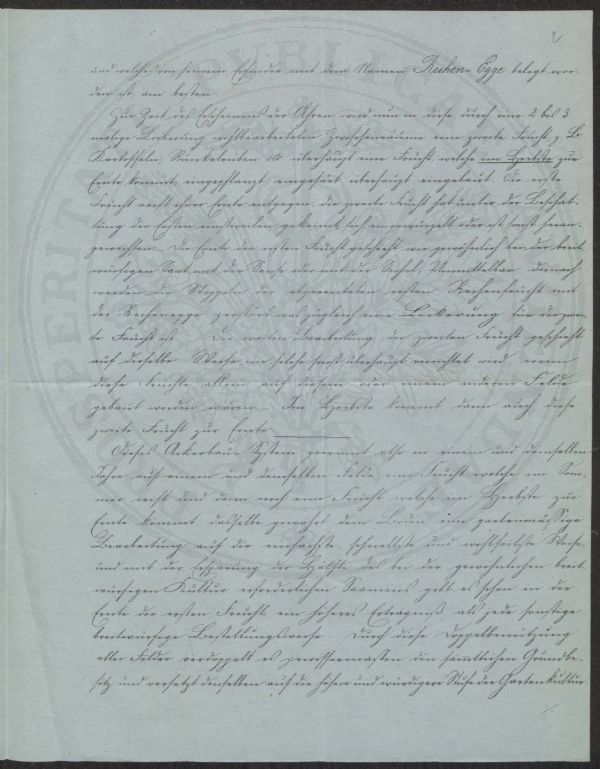 2
und welches von seinem Erfinder mit dem Namen Reihen-Egge belegt wor-
den ist, am besten.
Zur Zeit des Erscheinens der Ähren wird nun in diese durch eine 2 bis 3
malige Lockerung wohlbearbeiteten Zwischenräume eine zweite Frucht z. B.
Kartoffeln, Runkelrüben etc überhaupt eine Frucht, welche im Herbste zur
Ernte kommt, eingepflanzt, eingesäet, überhaupt eingebaut. Die erste
Frucht reift ihrer Ernte entgegen; die zweite Frucht hat unter der Beschat-
tung der ersten einstweilen gekeimt, sich eingewurzelt oder ist sonst heran-
gewachsen. Die Ernte der ersten Frucht geschieht wie gewöhnlich bei der breit-
würfigen Saat mit der Sense oder mit der Sichel. Unmittelbar darnach
werden die Stoppeln der abgeernteten ersten Reihenfrucht mit
der Reihenegge zerstört was zugleich eine Lockerung für die zwei-
te Frucht ist. Die weitere Bearbeitung der zweiten Frucht geschieht
auf dieselbe Weise wie solche sonst überhaupt verrichtet wird, wenn
diese Früchte allein auf diesem oder einem anderen Felde
gebaut worden wären. Im Herbste kommt dann auch diese
zweite Frucht zur Ernte.
Dieses Ackerbau-System gewinnt also in einem und demselben
Jahre auf einem und demselben Felde eine Frucht welche im Som-
mer reift und dann noch eine Frucht welche im Herbste zur
Ernte kommt; dasselbe gewährt dem Boden eine gartenmässige
Bearbeitung auf die einfachste, schnellste und wohlfeilste Weise,
und mit der Ersparung der Hälfte des bei der gewöhnlichen breit-
würfigen Kultur erforderlichen Saamens gibt es schon in der
Ernte der ersten Frucht ein höheres Erträgniß als jede sonstige
breitwürfige Bestellungsweise. Durch diese Doppelbenützung
aller Felder verdoppelt es gewissermassen den sämmtlichen Grundbe-
sitz und versetzt denselben auf die höhere und würdigere Stufe der Gartenkultur